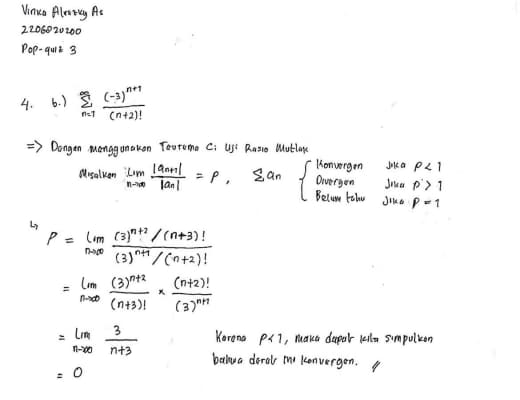 Vinka Alrezky As
2206820200
Pop-quiz 3
4. b.) ∞ Σ n=1 (-3)^{n+1} / (n+2)!
=> Dengan menggunakan Teorema C: Uji Rasio Mutlak
Misalkan lim n→∞ |an+1| / |an| = P, Σan { Konvergen Jika P<1
Divergen Jika P>1
Belum tahu Jika P=1
↳ P = lim n→∞ (3)^{n+2}/(n+3)! / (3)^{n+1}/(n+2)!
= lim n→∞ (3)^{n+2} / (n+3)! × (n+2)! / (3)^{n+1}
= lim n→∞ 3 / n+3
= 0
Karena P<1, maka dapat kita simpulkan
bahwa deret ini konvergen. //